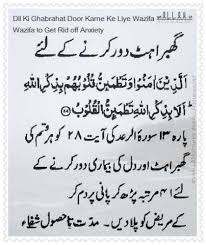 Dil Ki Ghabrahat Door Karne Ke Liye Wazifa
Wazifa to Get Rid off Anxiety
گھبراہٹ دور کرنے کے لئے
اَلَّذِيْنَ اٰمَنُوْا وَتَطْمَئِنُّ قُلُوْبُهُمْ بِذِكْرِ اللّٰهِ
اَلَا بِذِكْرِ اللّٰهِ تَطْمَئِنُّ الْقُلُوْبُ
پارہ ۱۳ سورۃ الرعد کی آیت ۲۸ کو ہر قسم کی
گھبراہٹ اور دل کی بیماری دور کرنے کے
لئے ۴۱ مرتبہ پڑھ کر پانی پر دم کر
کے مریض کو پلادیں۔ مدت تا حصول شفاء